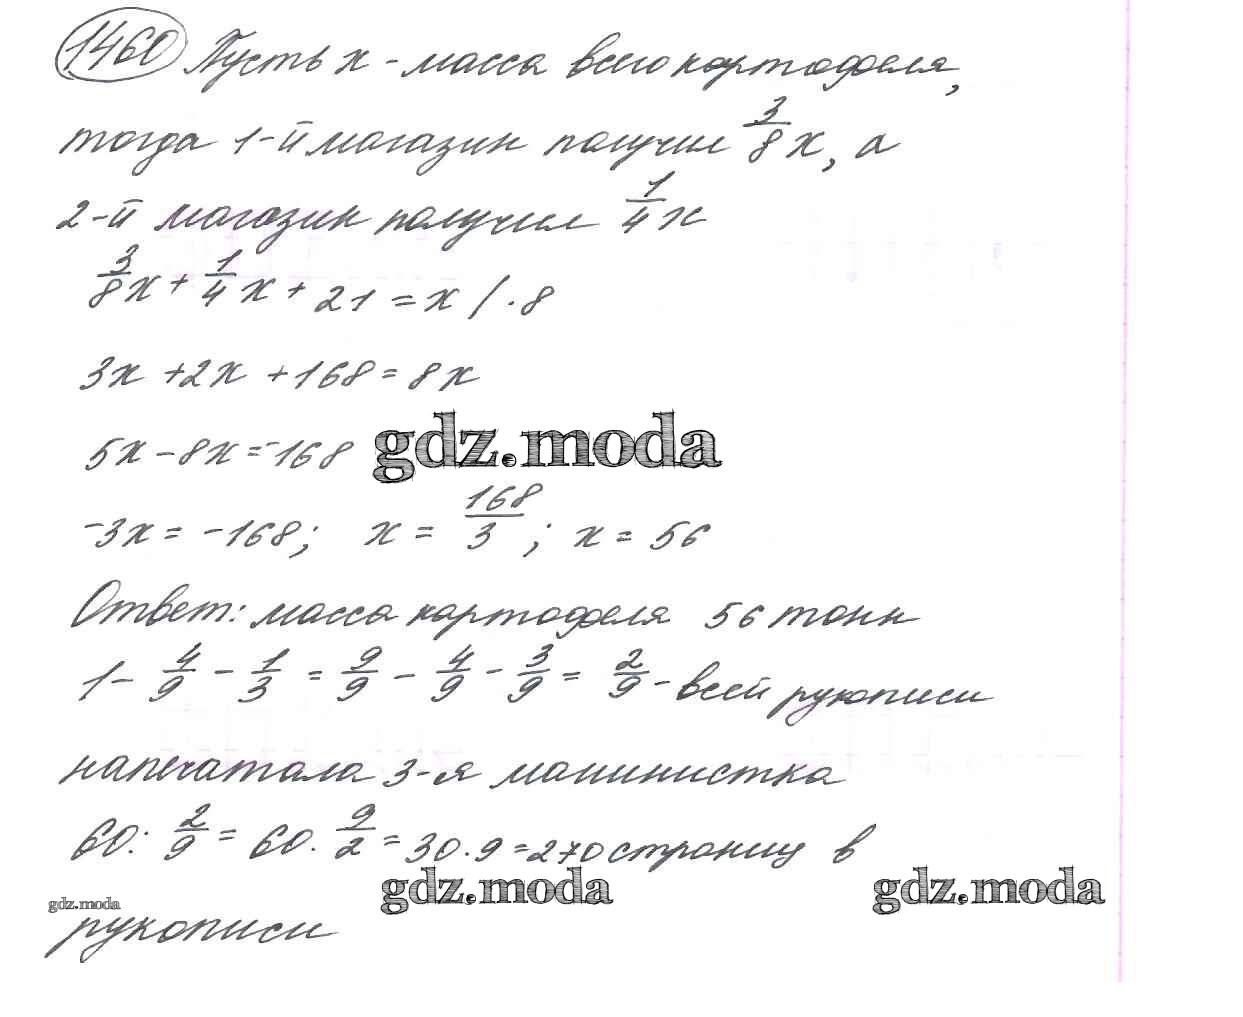 1460 Пусть x - масса всего картофеля,
тогда 1-й магазин получил 3/8 x, а
2-й магазин получил 1/4 x
3/8 x + 1/4 x + 21 = x / · 8
3x + 2x + 168 = 8x
5x - 8x = -168
gdz.moda
-3x = -168; x = 168/3; x = 56
Ответ: масса картофеля 56 тонн
1 - 4/9 - 1/3 = 9/9 - 4/9 - 3/9 = 2/9 - всей рукописи
напечатала 3-я машинистка
60 : 2/9 = 60 · 9/2 = 30 · 9 = 270 страниц в
gdz.moda gdz.moda
gdz.moda
рукописи